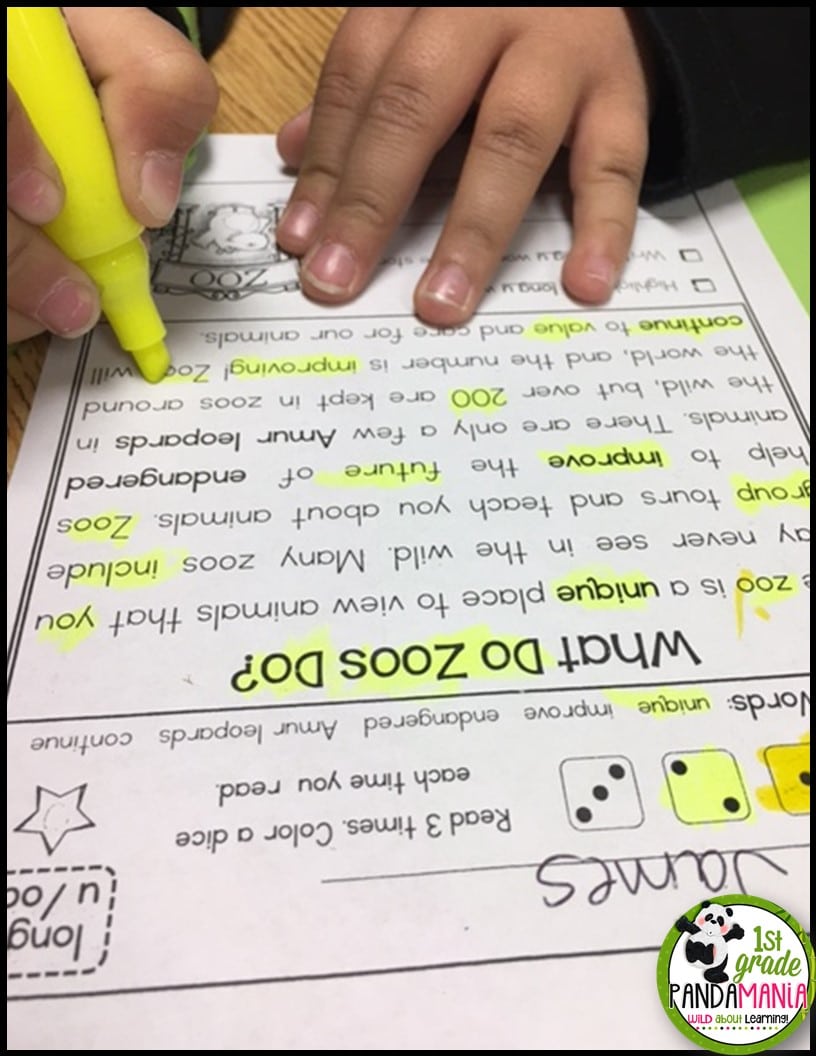 long
u /oo
James
Read 3 times. Color a dice
each time you read.
Words: unique improve endangered Amur leopards continue
What Do Zoos Do?
zoo is a unique place to view animals that you
never see in the wild. Many zoos include
group tours and teach you about animals. Zoos
help to improve the future of endangered
animals. There are only a few Amur leopards in
the wild, but over 200 are kept in zoos around
the world, and the number is improving! Zoos will
continue to value and care for our animals.
Highlight long u
ZOO
1st
grade
PANDAMANIA
WILD about Learning!